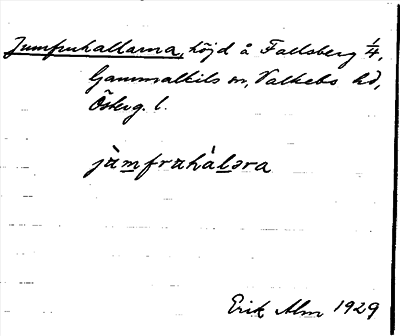 Jumfruhallarna, höjd å Fallsberg 1/4,
Gammalkils sn, Valkebo hd,
Österg. l.
jùmfruhàlera
Erik Alm 1929